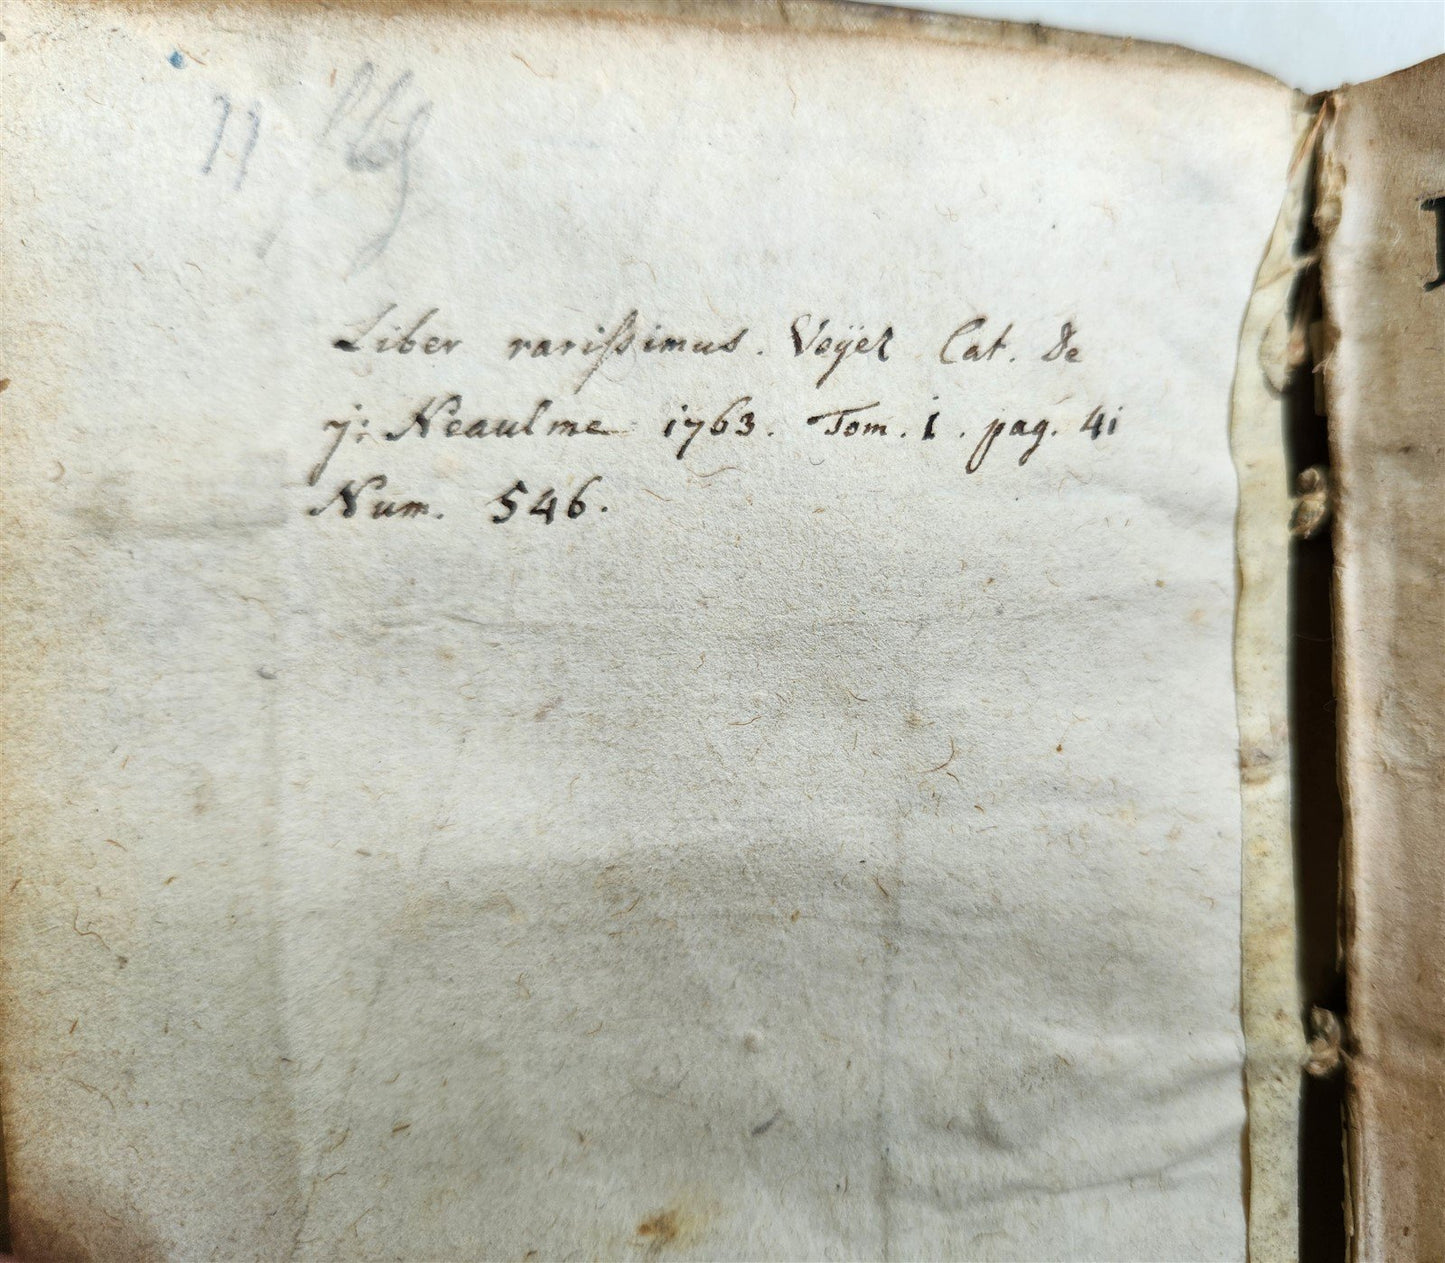 11
Liber rarissimus. Voÿez Cat. de
J: Neaulme 1763. Tom. i. pag. 41
Num. 546.